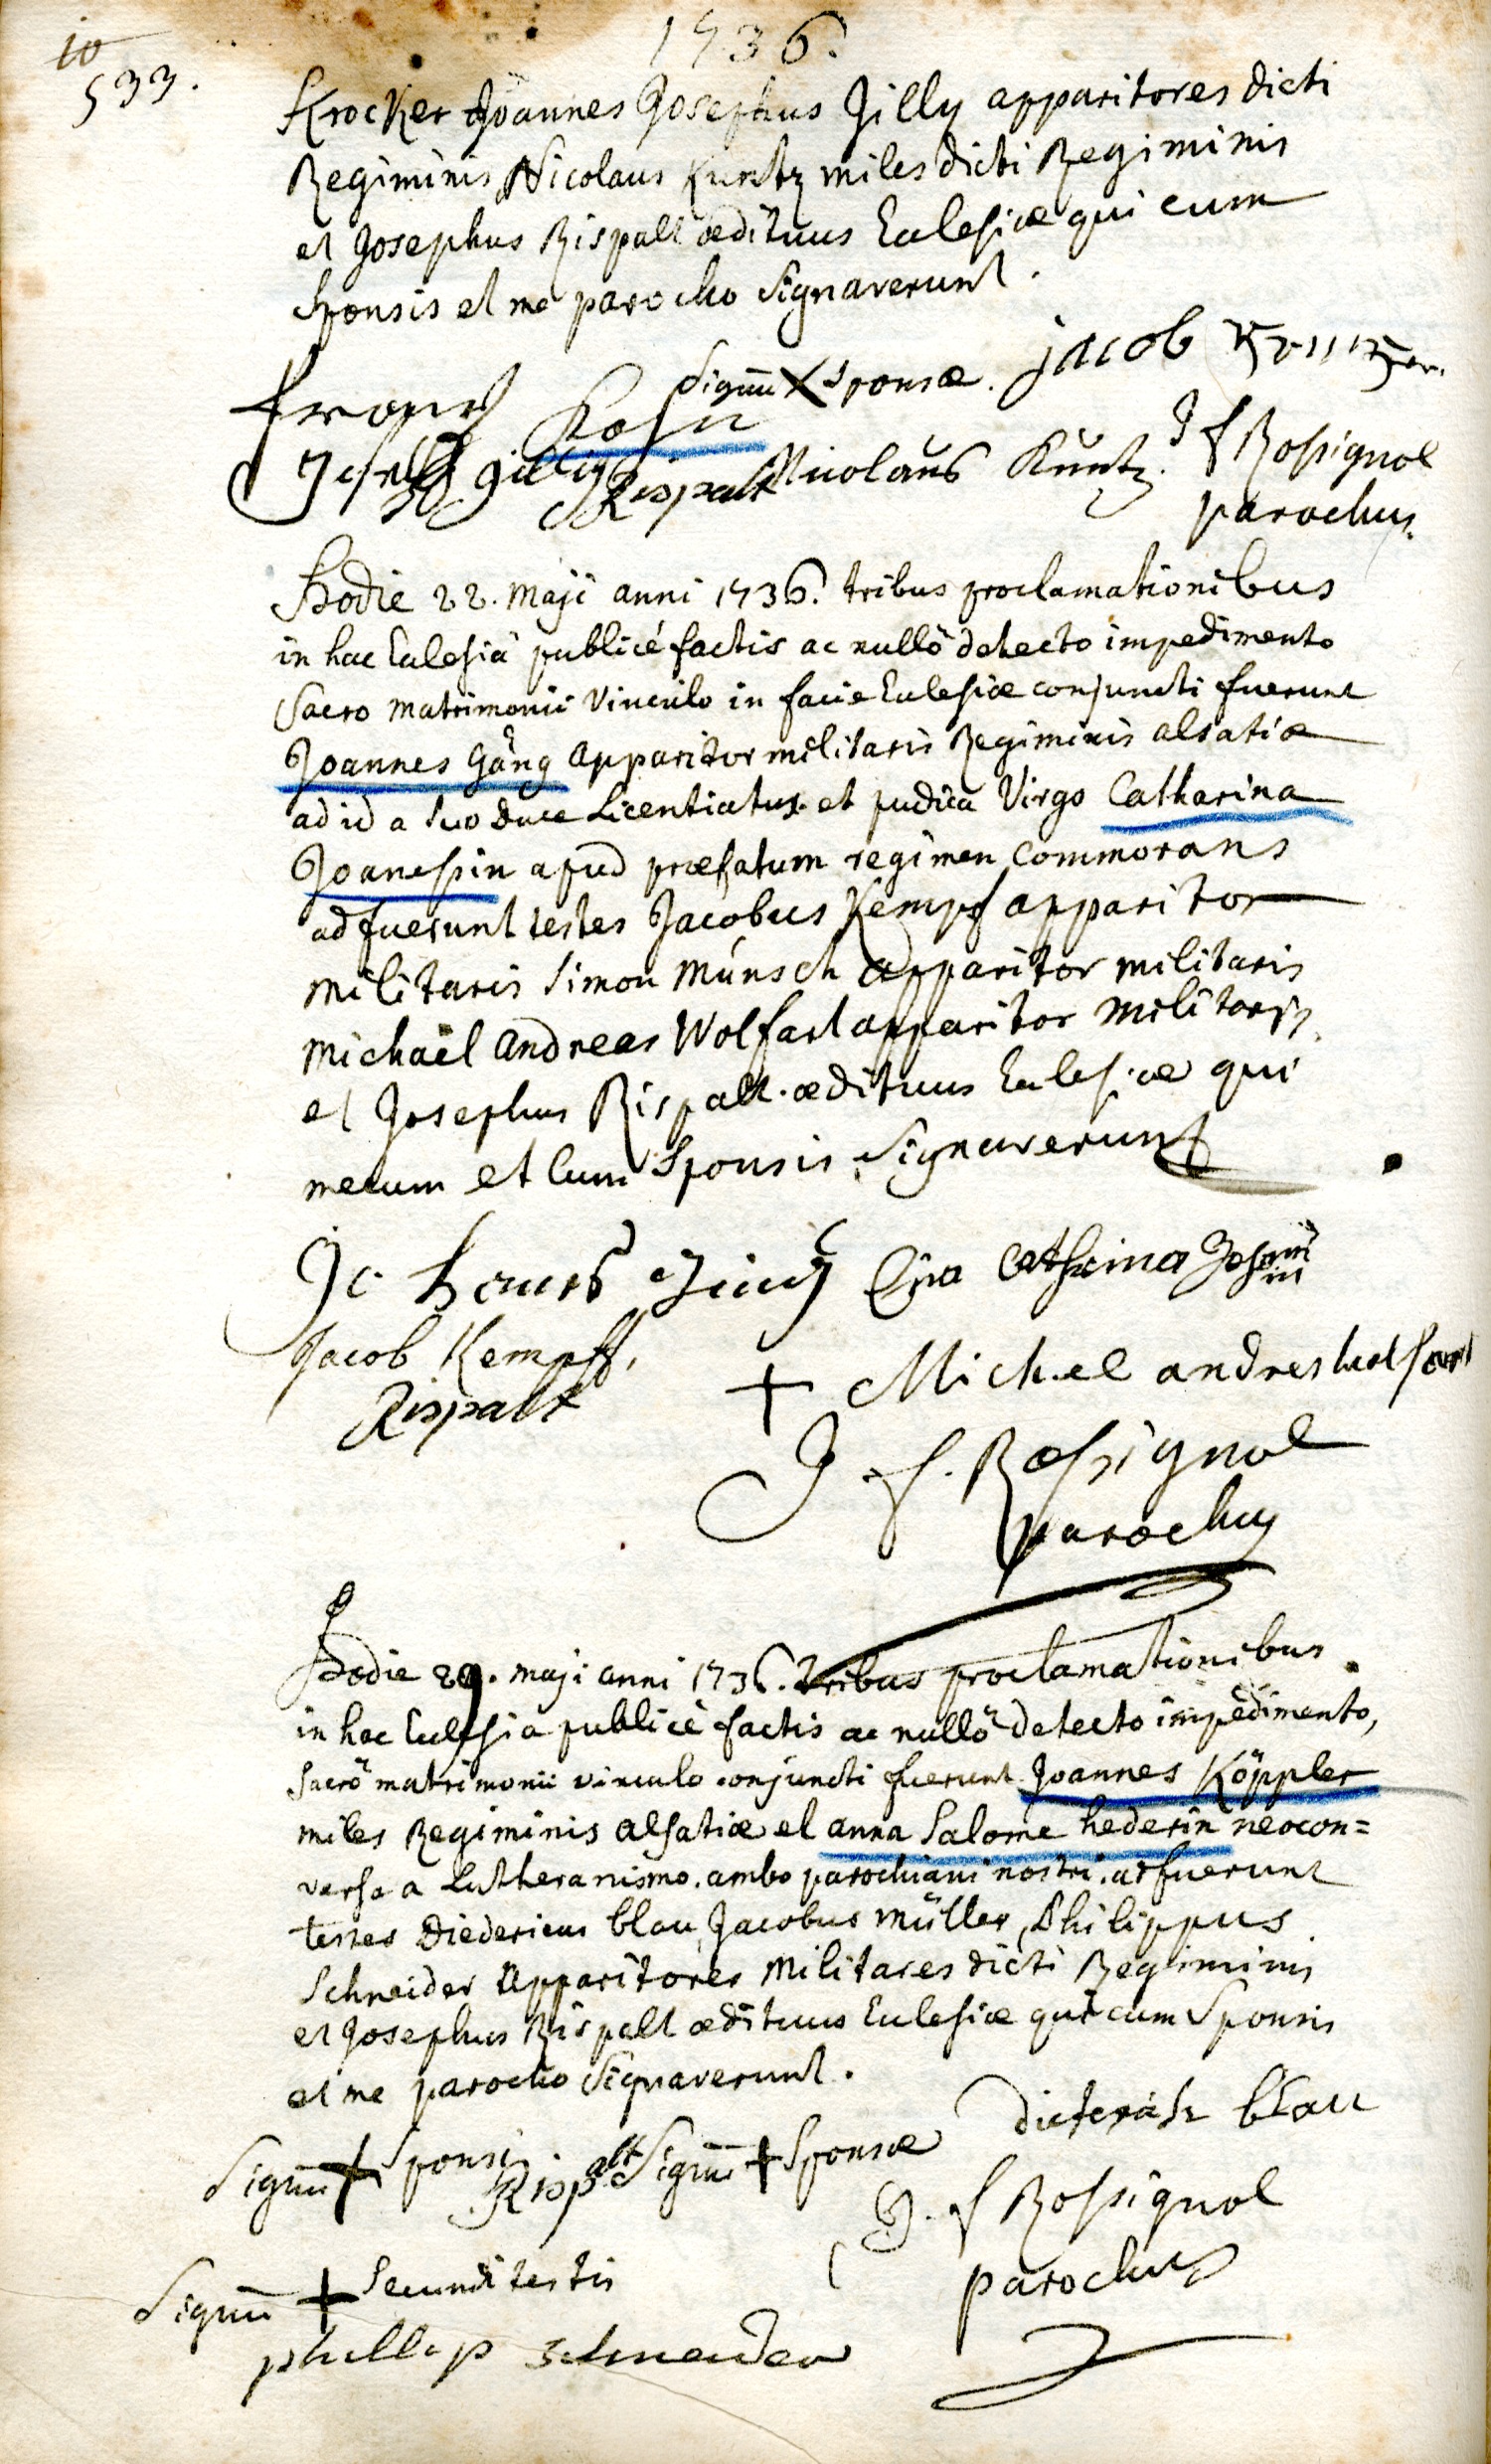 1736.
10
533.
Krocker Joannes Josephus Jilly apparitores dicti
Regiminis, Nicolaus Kuntz miles dicti Regiminis
et Josephus Rispalt ædituus Eclesiæ qui cum
sponsis et me parocho signaverunt.
Signū X sponsæ. jacob
frantz
gillig Rispalt Nicolaus Kuntz. J f Rossignol
parochus.
Hodie 22. maji anni 1736. tribus proclamationibus
in hac Eclesiâ publicé factis ac nullô detecto impedimento
Sacro matrimonii vinculo in facie Eclesiæ conjuncti fuerunt
Joannes Gäng apparitor militaris Regiminis alsatiæ
ad id a suo duce Licentiatus. et pudica Virgo Catharina
Joanessin apud præfatum regimen commorans
adfuerunt testes Jacobus Kempf apparitor
militaris Simon Münsch apparitor militaris
michaël andreas Wolfart apparitor militaris
et Josephus Rispalt. ædituus Eclesiæ qui
mecum et cum sponsis signaverunt
Catherina
Jacob Kempff, + Michel andres
Rispalt
J f. Rossignol
parochus
Hodie 29. maji anni 1736. tribus proclamationibus
in hac Eclesia publicè factis ac nullô detecto impedimento,
sacrô matrimonii vinculo conjuncti fuerunt Joannes Köppler
miles Regiminis alsatiæ et anna Salome hederin neocon=
versa a Lutheranismo. ambo parochiani nostri. adfuerunt
testes Diedericus blau, Jacobus müller, Philippus
Schneider apparitores militares dicti Regiminis
et Josephus Rispalt ædituus Eclesiæ qui cum sponsis
et me parocho signaverunt.
Signū + sponsi Rispalt Signū + sponsæ dieterich blau
J. f Rossignol
parochus
Signū + secundi testis
phillip schneider